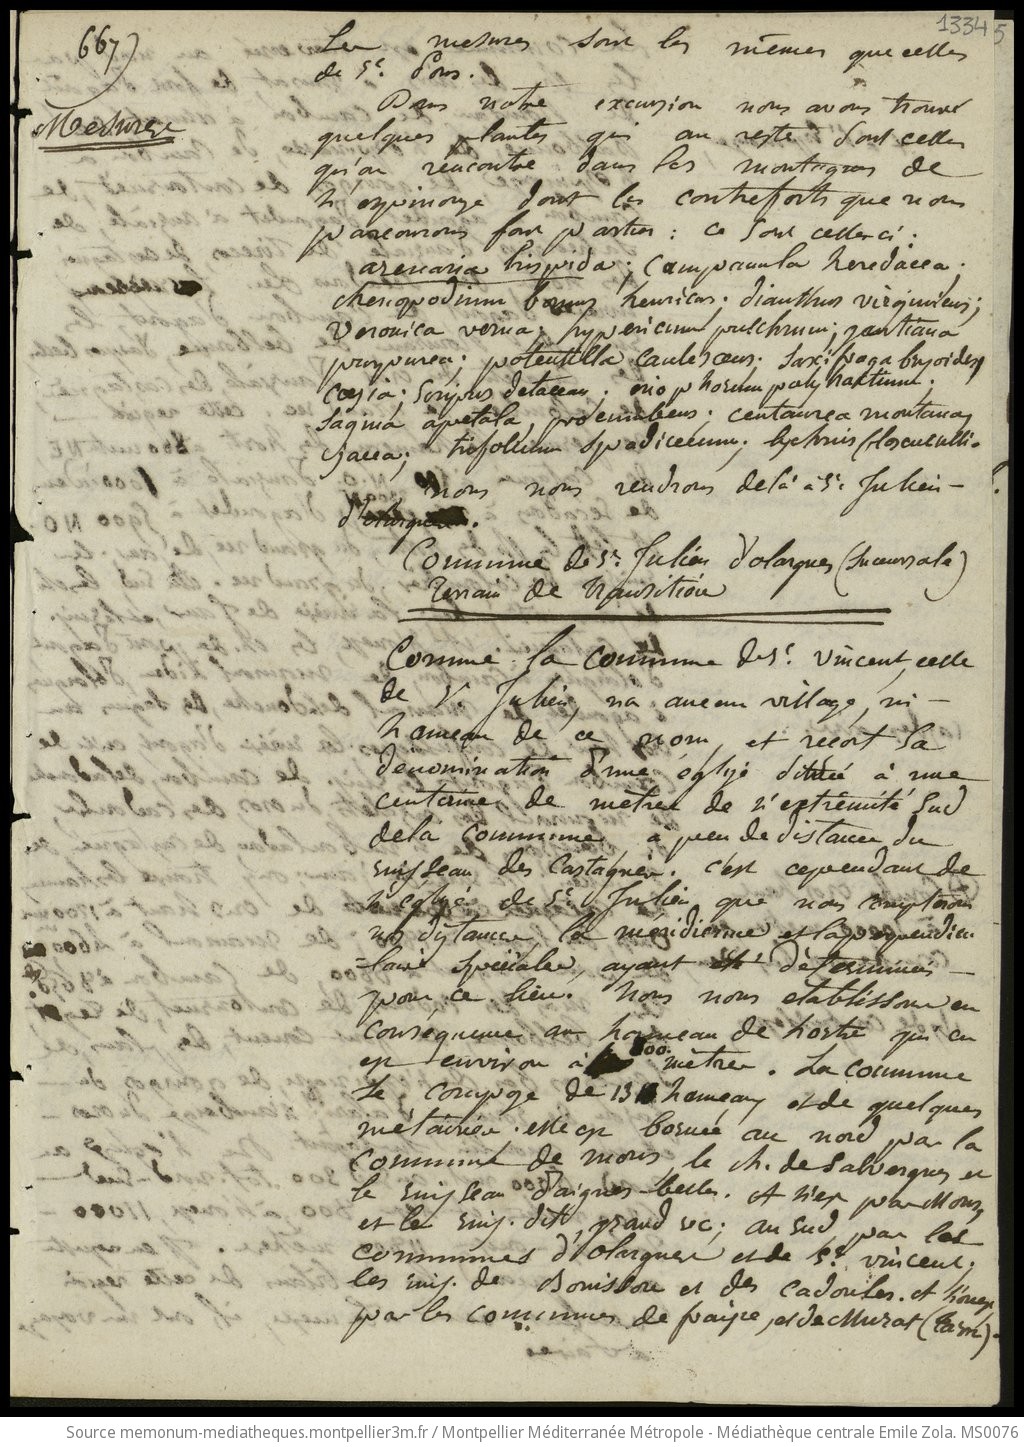 13345
667)
Mesures
Les mesures sont les mêmes que celles
de St. Pons.
Dans notre excursion nous avons trouvé
quelques plantes qui au reste sont celles
qu'on rencontre dans les montagnes de
l'espinouze dont les contreforts que nous
parcourons font parties : ce sont celles ci :
arenaria hispida ; Campanula heredacea ;
chenopodium bonus henricus ; dianthus virginieus ;
Veronica verna ; hypericum pulchrum ; gentiana
purpurea ; potentilla caulescens ; Saxifraga bryoides,
cæsia ; Scirpus setaceus ; eriophorum polystachium ;
Sagina apetala, procumbens ; centaurea montana,
jacea ; trifolium spadiceum ; lychnis floscuculli.
nous nous rendrons de là à St. Julien -
d'olargues.
Commune de St. Julien d'olargues (Succursale)
Terrain de Transition
Comme la commune de St. Vincent, celle
de St. Julien, n'a aucun village, ni -
hameau de ce nom, et reçoit sa
dénomination d'une église située à une
centaine de mètres de l'extrêmité Sud
de la commune, à peu de distance du
ruisseau des Castagnès. C'est cependant de
l'église de St. Julien que nous compterons
nos distances, la méridienne et la perpendicu
=laire spéciales, ayant été déterminées -
pour ce lieu. Nous nous etablissons en
conséquence au hameau de horte qui en
est environ à 800 mètres. La commune
se compose de 13 hameaux et de quelques
métairies. elle est bornée au nord par la
commune de mons, le ch. de Salvergues et
le ruisseau d'aigues-belles. A l'est par Mons,
et le ruis. dit, grand sec ; au sud par les
communes d'olargues et de St. vincent,
les ruis. de Bouissou et des cadoules. et l'ouest
par les communes de fraïsse, et de Murat (Tarn).
Source memonum-mediatheques.montpellier3m.fr / Montpellier Méditerranée Métropole - Médiathèque centrale Emile Zola. MS0076